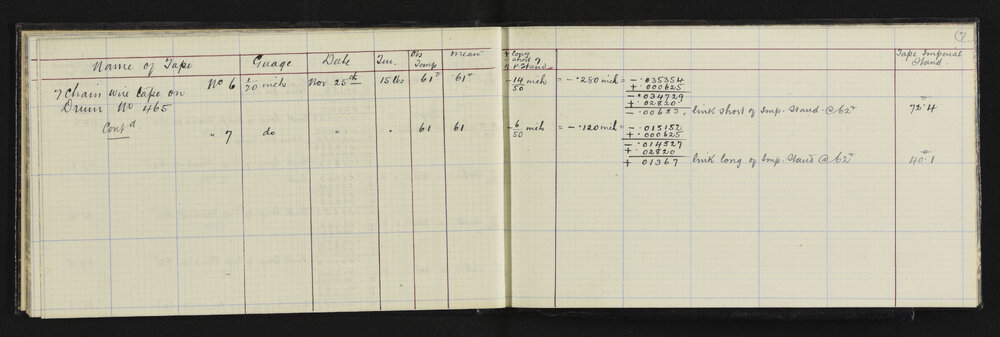 (7
Name of Tape Guage Date Ten. Obs Temp Mean + long - short of N.P. Stand Tape Imperial Stand
7 Chain wire tape on No 6 1/20 inch Nov 25th 15 lbs 61° 61° -14/50 inch = -.280 inch = -.035354
Drum No 465 +.000625
-.034729
+.02820
-.00653 link short of Imp. Stand. @ 62° 72°.4
Contd " 7 do " " 61 61 -6/50 inch = -.120 inch = -.015152
+.000625
-.014527
+.02820
+ 01367 link long of Imp. Stand @ 62° 40°.1